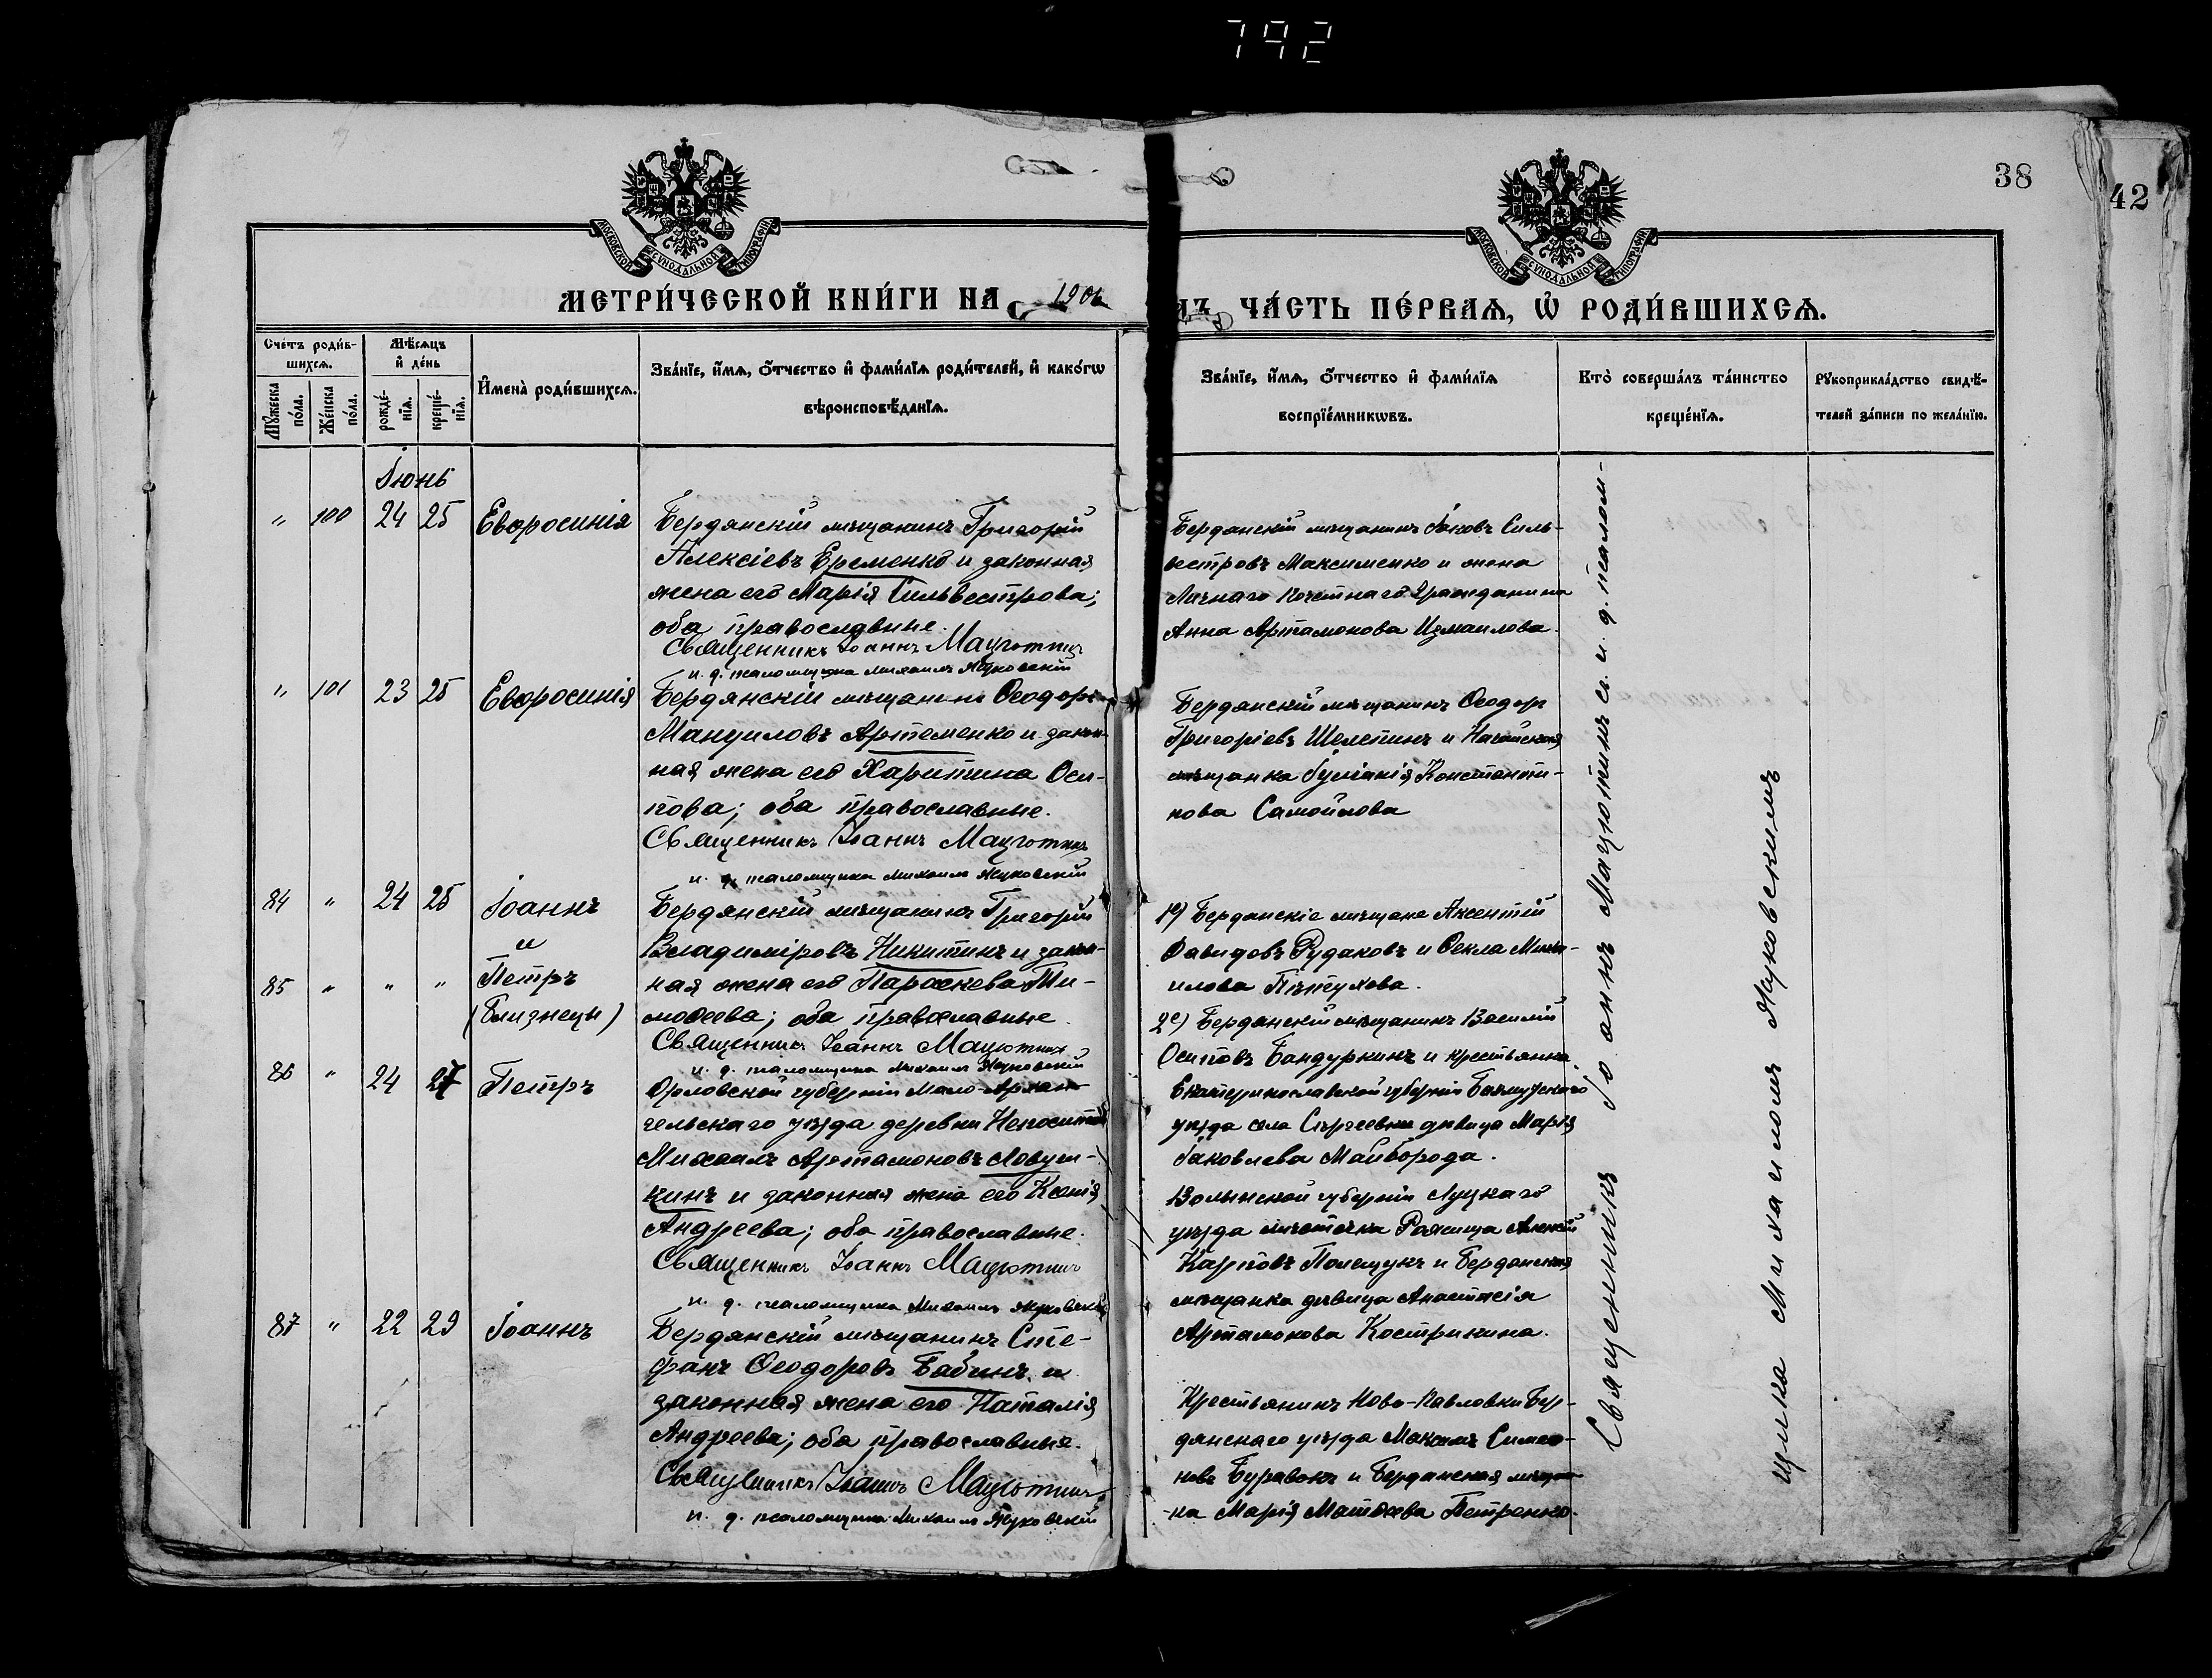 792
38
42
МОСКОВСКОЙ СѴНОДАЛЬНОЙ ТИПОГРАФІИ
МОСКОВСКОЙ СѴНОДАЛЬНОЙ ТИПОГРАФІИ
МЕТРИ́ЧЕСКОЙ КНИ́ГИ НА 1906
ДЪ, ЧА́СТЬ ПЕ́РВАѦ, Ѡ҆ РОДИ́ВШИХСѦ.
Сче́тъ роди́в-
шихсѧ.
Мꙋ́жеска по́ла.
Же́нска по́ла.
Мѣ́сѧцъ
и҆ де́нь
рожде́-
нїѧ.
креще́-
нїѧ.
И҆мена̀ роди́вшихсѧ.
Зва́нїе, и҆́мѧ, ѻ҆́тчество и҆ фами́лїѧ роди́телей, и҆ како́гѡ
вѣроисповѣ́данїѧ.
Зва́нїе, и҆́мѧ, ѻ҆́тчество и҆ фами́лїѧ
воспрїе́мникѡвъ.
Кто̀ соверша́лъ та́инство
креще́нїѧ.
Рꙋкоприкла́дство свидѣ́-
телей за́писи по жела́нїю.
Іюнь
" 100 24 25 Евѳросинія
Бердянскій мѣщанинъ Григорій
Алексіевъ Еременко и законная
жена его Марія Сильвестрова;
оба православные.
Священникъ Іоаннъ Мацютинъ
и. д. псаломщика Михаилъ Жуковскій
Бердянскій мѣщанинъ Іаковъ Силь-
вестровъ Максименко и жена
Личнаго Почетнаго Гражданина
Анна Артамонова Измаилова.
" 101 23 25 Евѳросинія
Бердянскій мѣщанинъ Ѳеодоръ
Мануиловъ Артеменко и закон-
ная жена его Харитина Оси-
пова; оба православные.
Священникъ Іоаннъ Мацютинъ
и. д. псаломщика Михаилъ Жуковскій
Бердянскій мѣщанинъ Ѳеодоръ
Григоріевъ Шелестинъ и Ногайская
мѣщанка Іуліанія Константи-
нова Самойлова
84 " 24 25 Іоаннъ
и
85 " " " Петръ
(близнецы)
Бердянскій мѣщанинъ Григорій
Владиміровъ Никитинъ и закон-
ная жена его Параскева Ти-
моѳеева; оба православные.
Священникъ Іоаннъ Мацютинъ
и. д. псаломщика Михаилъ Жуковскій
1º) Бердянскіе мѣщане Аксентій
Давидовъ Рудаковъ и Ѳекла Миха-
илова Пѣтухова.
2º) Бердянскій мѣщанинъ Василій
Осиповъ Бандуркинъ и крестьянка
Екатеринославской губерніи Бахмутскаго
уѣзда села Сергеевки дѣвица Марія
Іаковлева Майборода.
86 " 24 27 Петръ
Орловской губерніи Мало-Архан-
гельскаго уѣзда деревни
Михаилъ Артамоновъ Ловуш-
кинъ и законная жена его Ксенія
Андреева; оба православные.
Священникъ Іоаннъ Мацютинъ
и. д. псаломщика Михаилъ Жуковскій
Волынской губерніи Луцкаго
уѣзда мѣстечка Рожища Алексій
Карповъ Полещукъ и Бердянская
мѣщанка дѣвица Анастасія
Артамонова Кострикина.
87 " 22 29 Іоаннъ
Бердянскій мѣщанинъ Сте-
фанъ Ѳеодоровъ Бабинъ и
законная жена его Наталія
Андреева; оба православные.
Священникъ Іоаннъ Мацютинъ
и. д. псаломщика Михаилъ Жуковскій
Крестьянинъ Ново-Павловки Бер-
дянскаго уѣзда Максимъ Симео-
новъ Буравокъ и Бердянская мѣщан-
ка Марія Матѳеева Петренко.
Священникъ Іоаннъ Мацютинъ съ и. д. псалом-
щика Михаиломъ Жуковскимъ